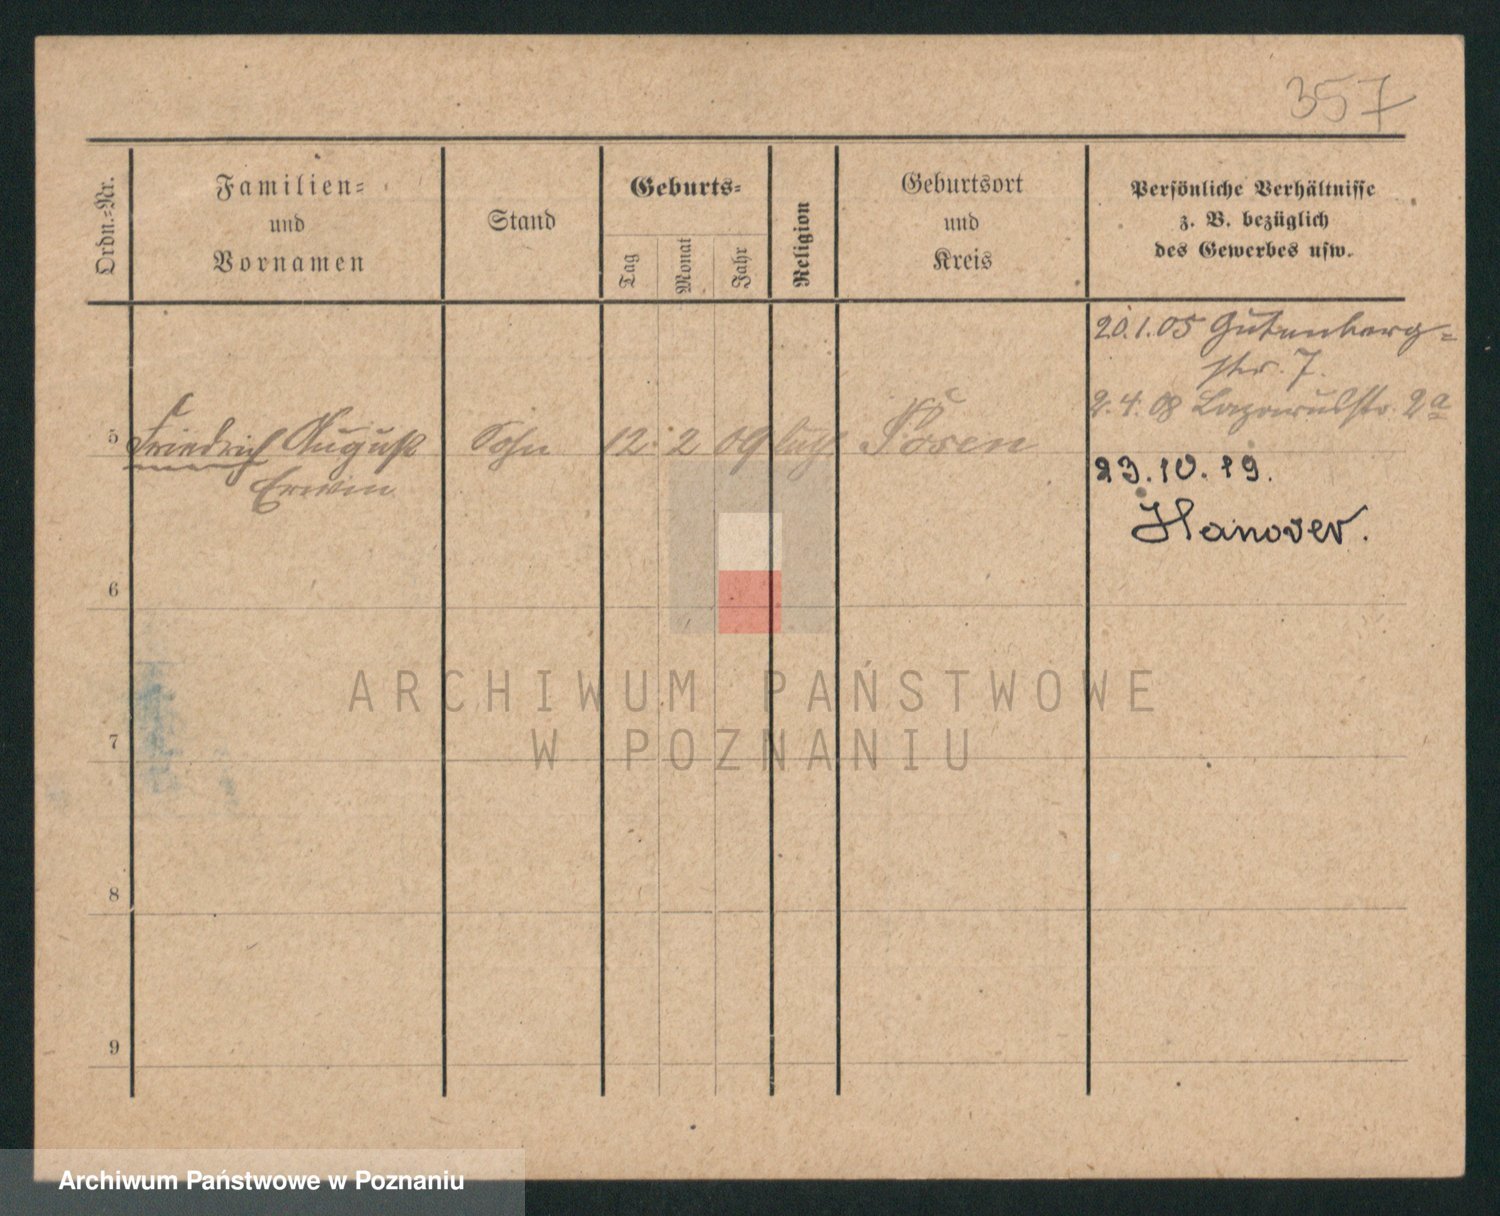 357
Ordn.-Nr.
Familien-
und
Vornamen
Stand
Geburts-
Tag
Monat
Jahr
Religion
Geburtsort
und
Kreis
Persönliche Verhältnisse
z. B. bezüglich
des Gewerbes usw.
20.1.05 Gutenberg-
str. 7.
2.4.08 Lazarusstr. 2a
5 Friedrich August Sohn 12 2 09 Posen
Erwin
23.10.19.
Hanover.
6
7
8
9
ARCHIWUM PAŃSTWOWE
W POZNANIU
Archiwum Państwowe w Poznaniu